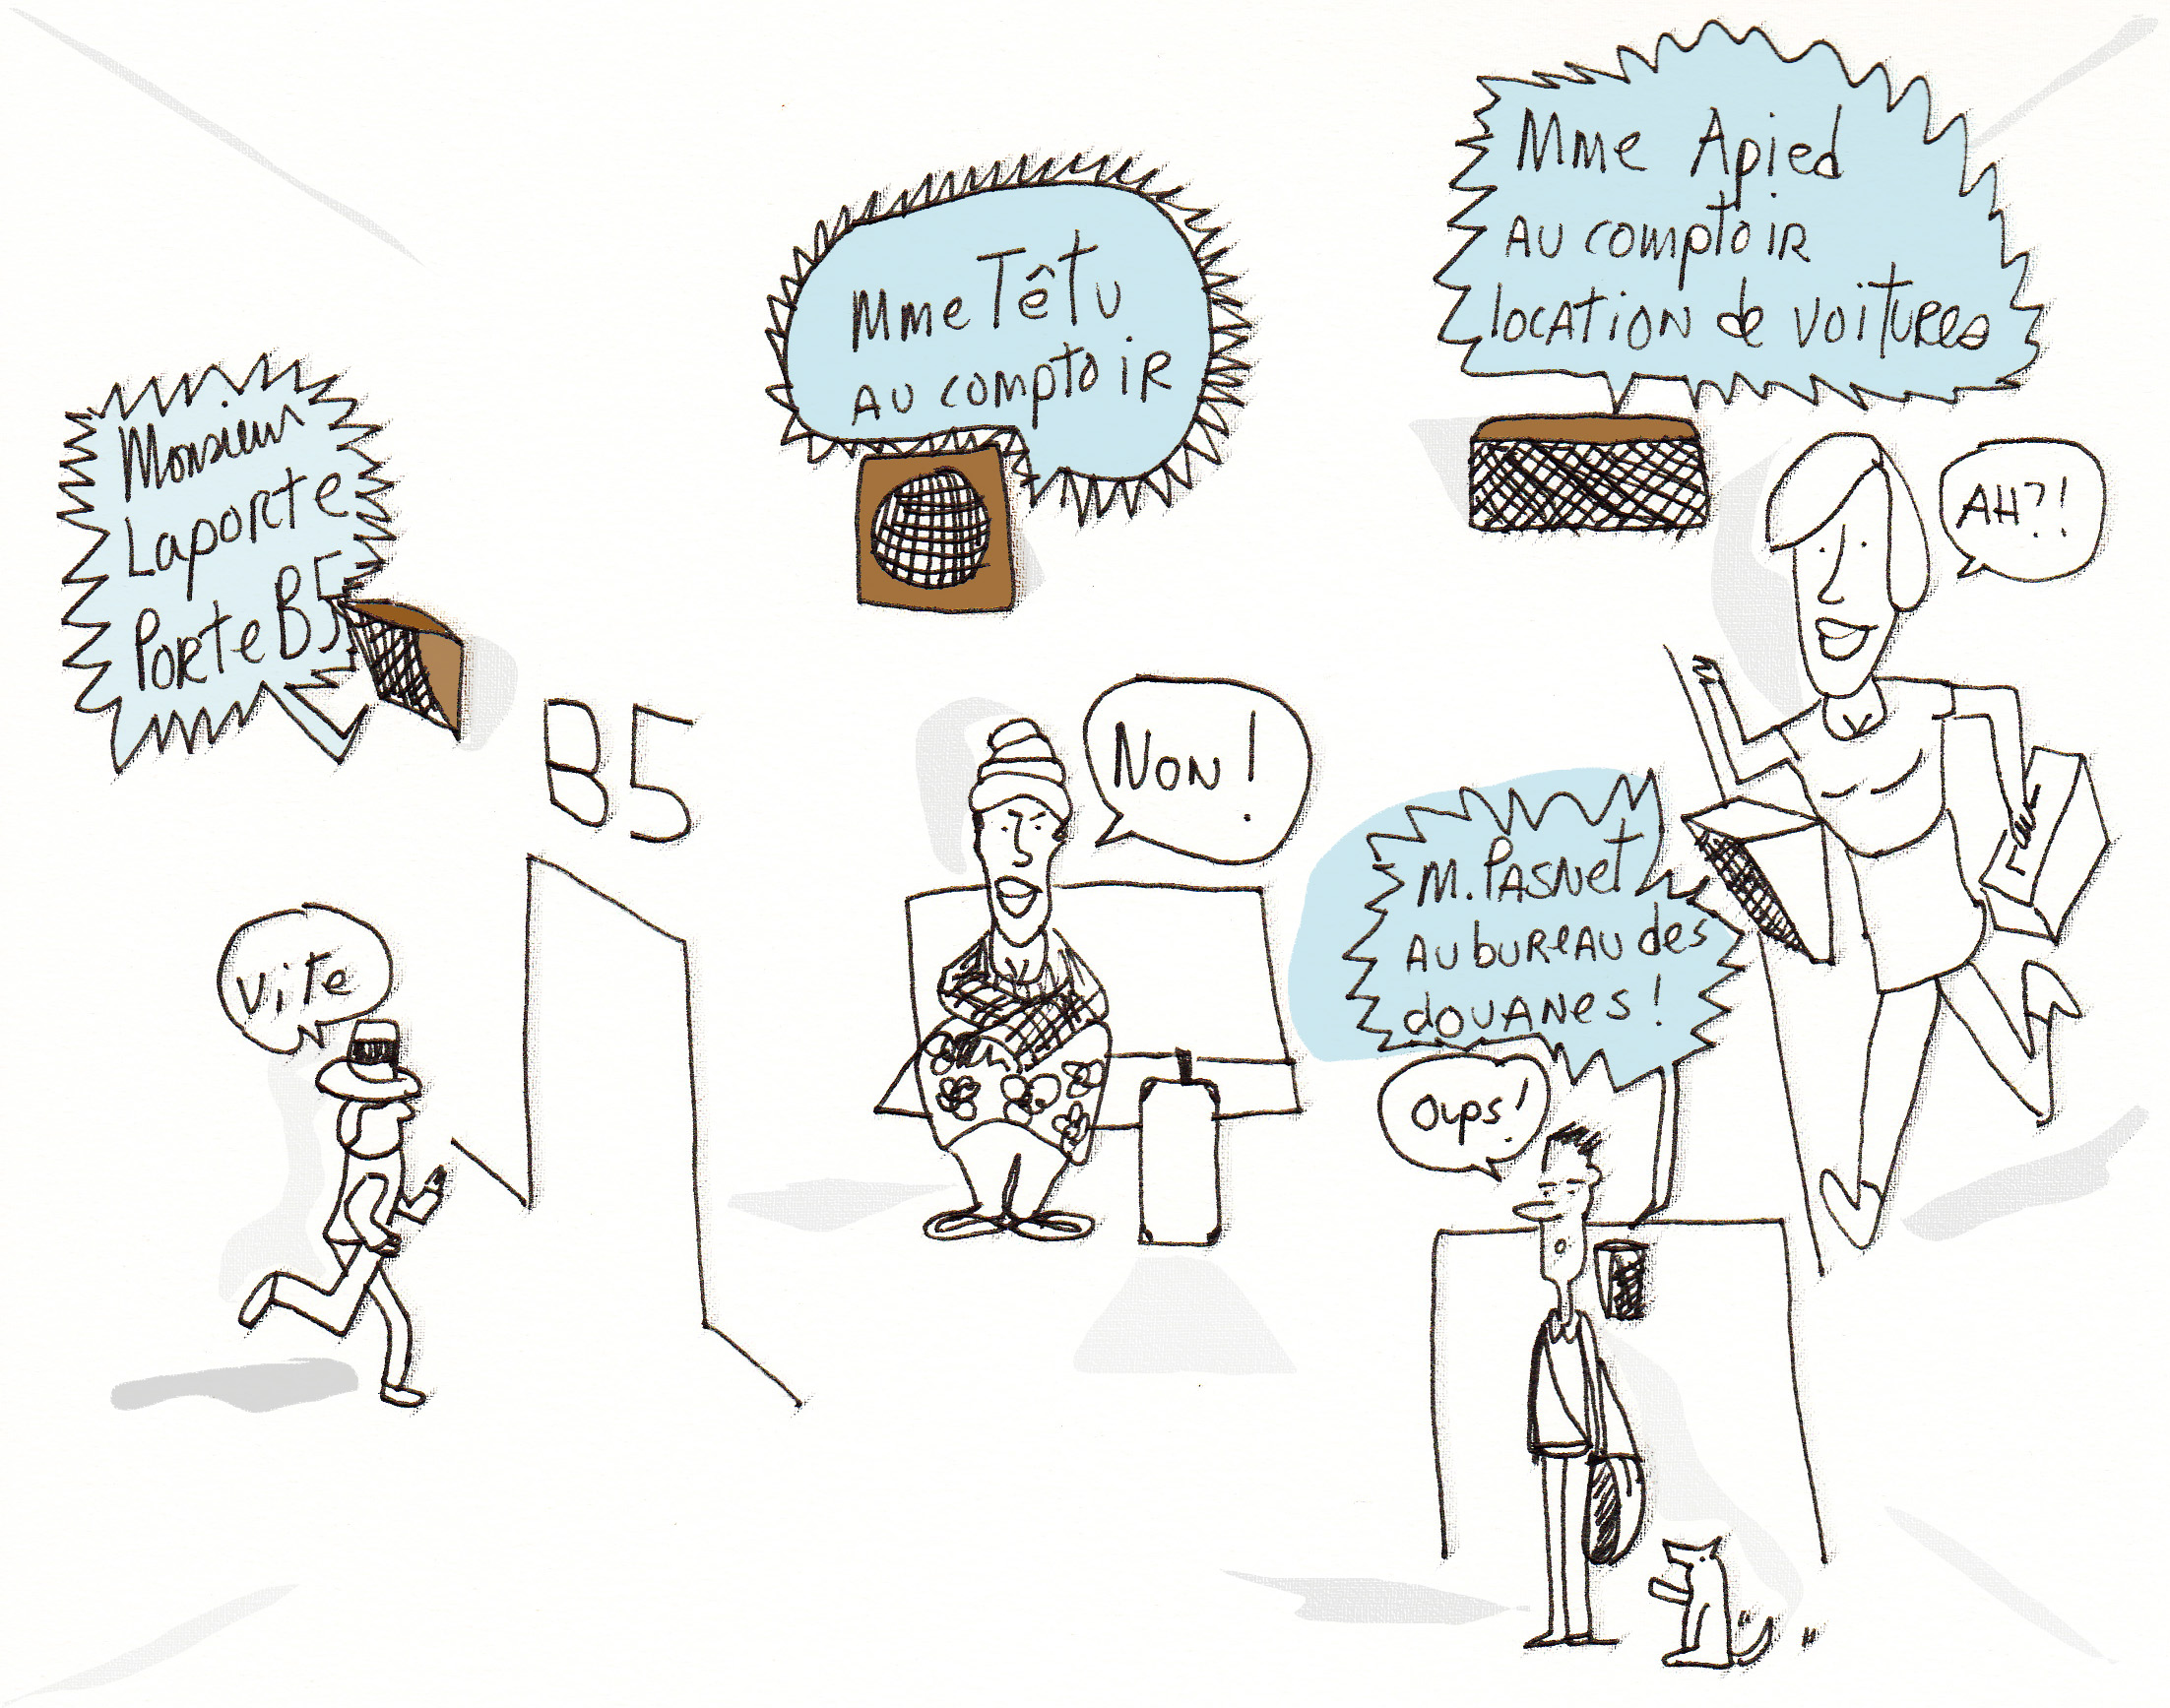 Monsieur
Laporte
Porte B5
B5
Vite
Mme Têtu
au comptoir
Non !
Mme Apied
au comptoir
location de voitures
AH?!
M. Pasnet
au bureau des
douanes !
Oups !